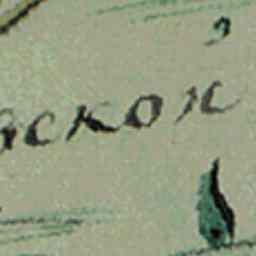 ской